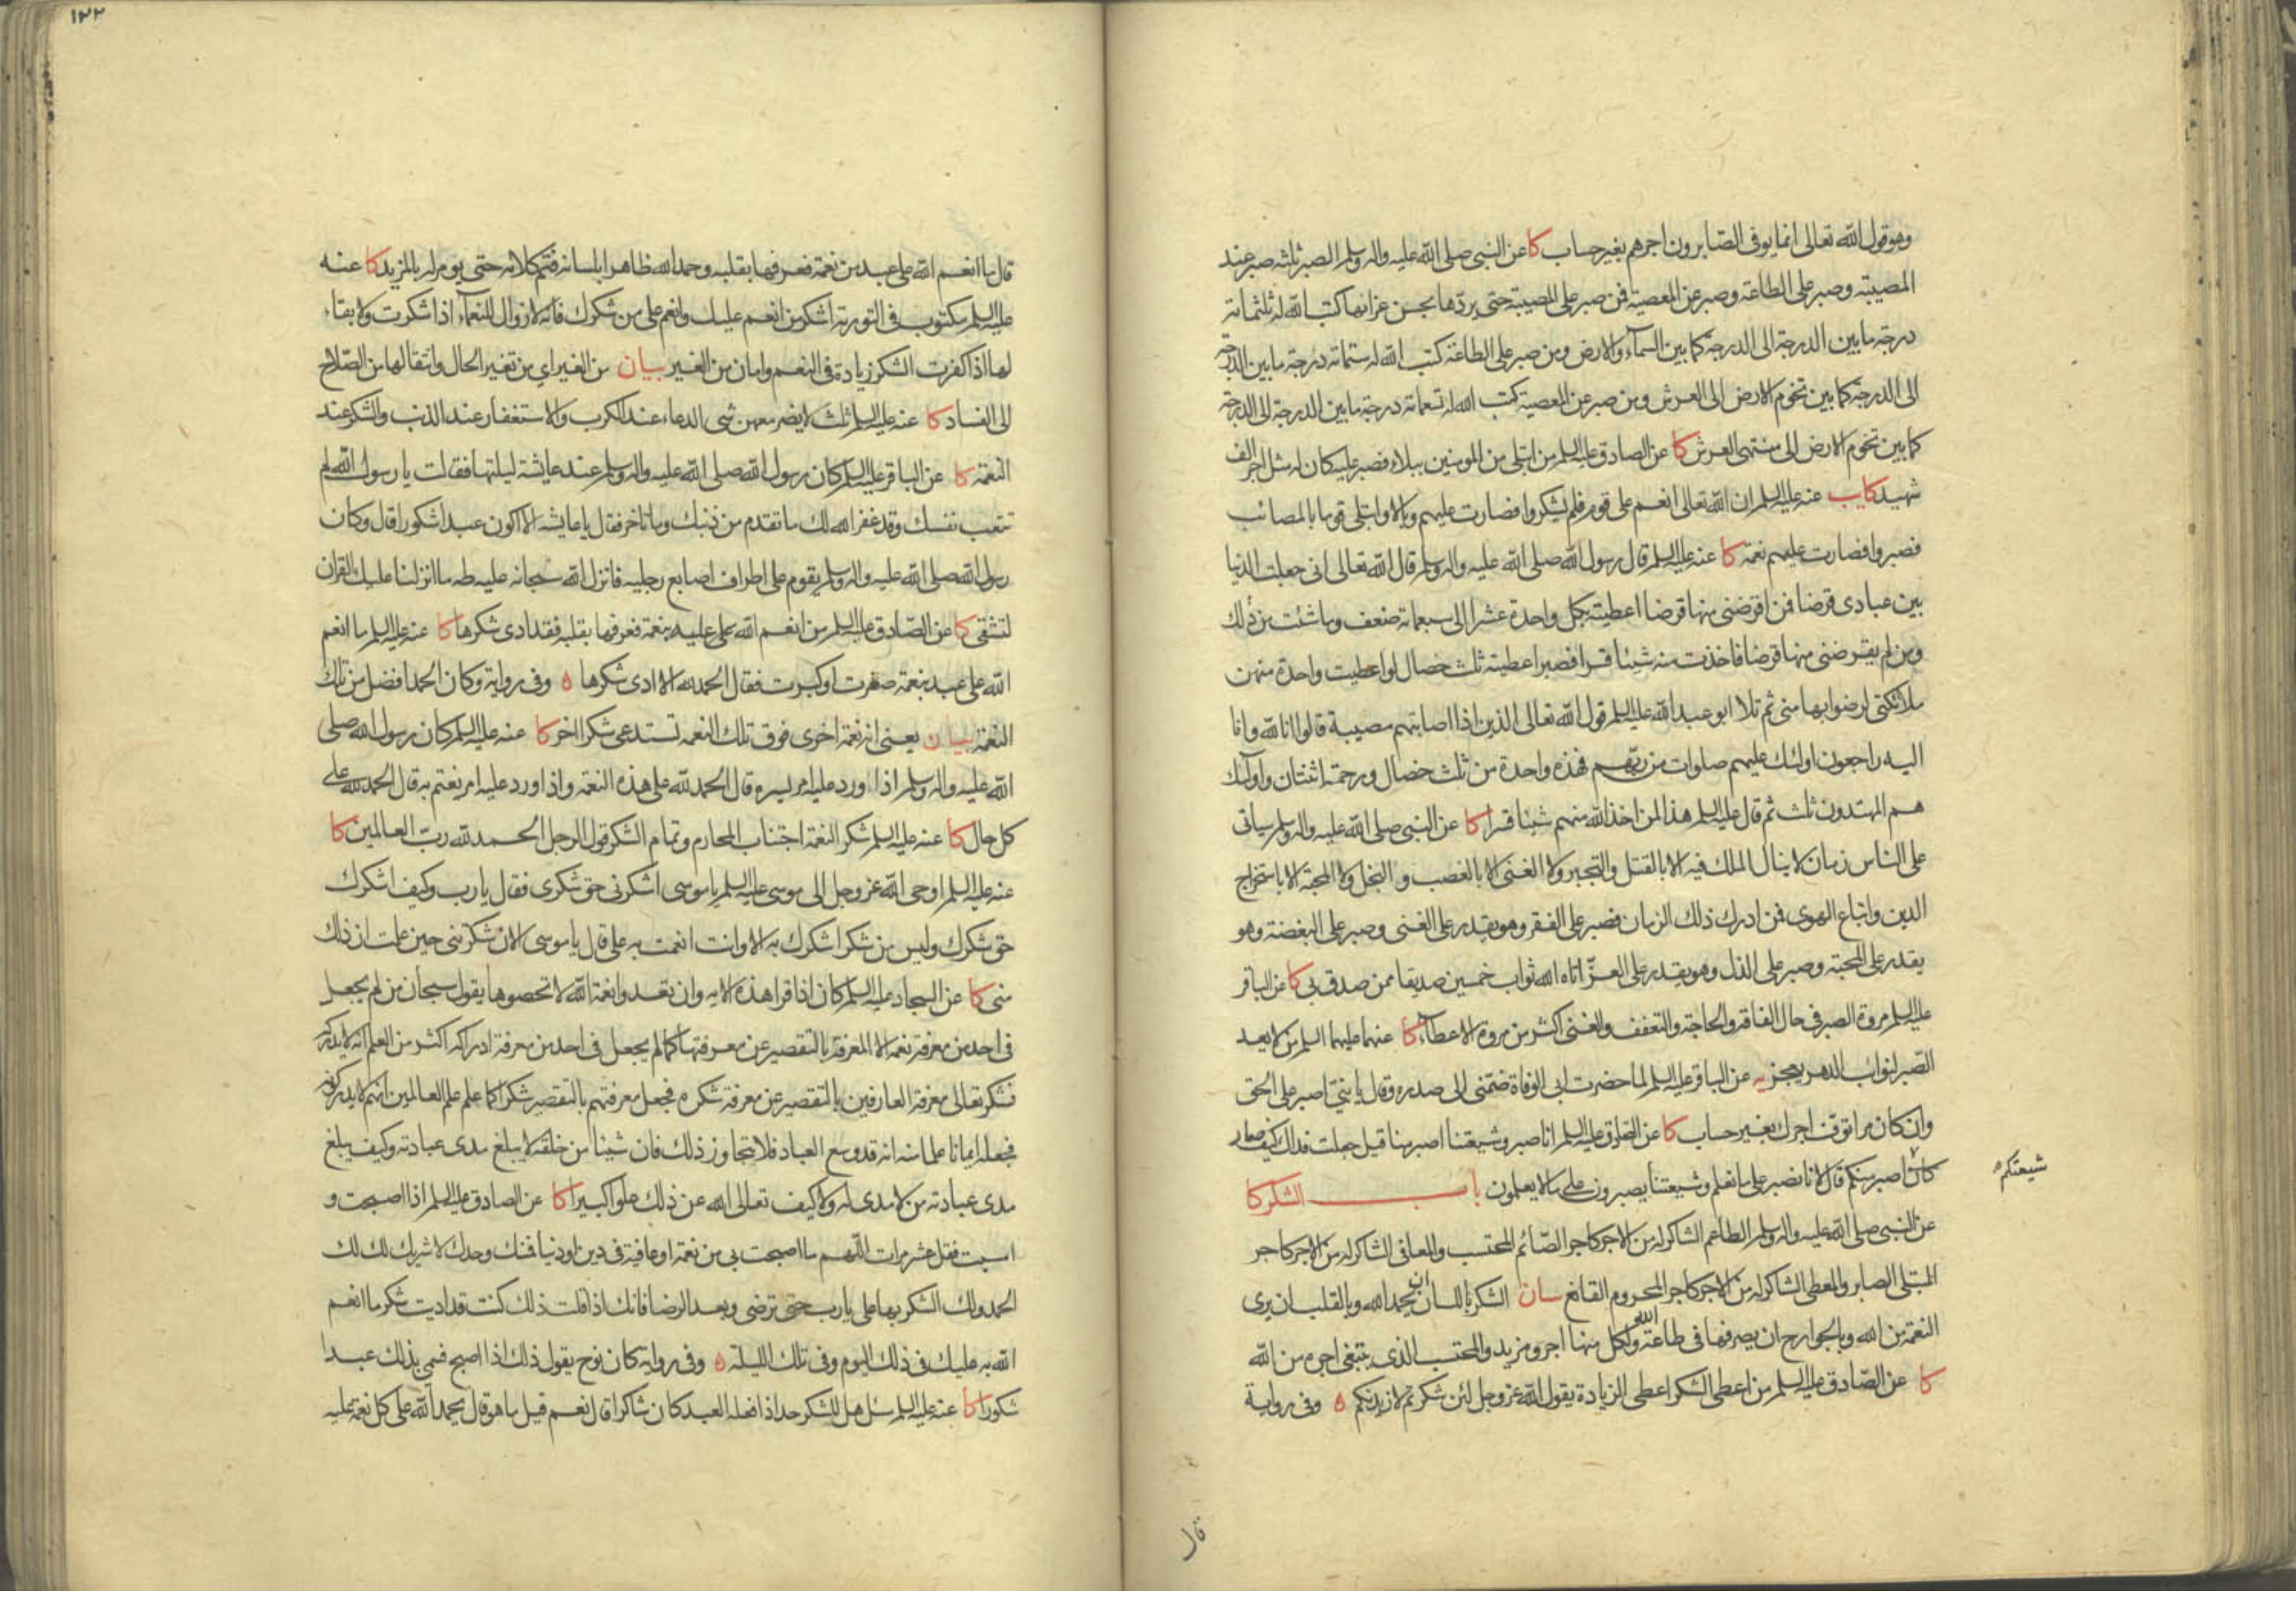 وهو قول الله تعالى انما يوفى الصابرون اجرهم بغير حساب كا عن النبى صلى الله عليه واله وسلم الصبر ثلثه صبر عند
المصيبة وصبر على الطاعة وصبر عن المعصية فمن صبر على المصيبة حتى يردها بحسن عزائها كتب الله له ثلثمائة
درجة ما بين الدرجة الى الدرجة كما بين السماء والارض ومن صبر على الطاعة كتب الله له ستمائة درجة ما بين الدرجة
الى الدرجة كما بين تخوم الارض الى العرش ومن صبر عن المعصية كتب الله له تسعمائة درجة ما بين الدرجة الى الدرجة
كما بين تخوم الارض الى منتهى العرش كا عن الصادق عليه السلم من ابتلى من المومنين ببلاء فصبر عليه كان له مثل اجر الف
شهيد كا عنه عليه السلم ان الله تعالى انعم على قوم فلم يشكروا فصارت عليهم وبالا وابتلى قوما بالمصائب
فصبروا فصارت عليهم نعمة كا عنه عليه السلم قال رسول الله صلى الله عليه واله وسلم قال الله تعالى انى جعلت الدنيا
بين عبادى قرضا فمن اقرضنى منها قرضا اعطيته بكل واحدة عشرا الى سبعمائة ضعف وما شئت من ذلك
ومن لم يقرضنى منها قرضا فاخذت منه شيئا قسرا فصبر اعطيته ثلث خصال لو اعطيت واحدة منهن
ملائكتى لرضوا بها منى ثم تلا ابو عبد الله عليه السلم قول الله تعالى الذين اذا اصابتهم مصيبة قالوا انا لله وانا
اليه راجعون اولئك عليهم صلوات من ربهم فهذه واحدة من ثلث خصال ورحمة اثنتان واولئك
هم المهتدون ثلث ثم قال عليه السلم هذا لمن اخذ الله منهم شيئا قسرا كا عن النبى صلى الله عليه واله وسلم سياتى
على الناس زمان لا ينال الملك فيه الا بالقتل والتجبر ولا الغنى الا بالغصب و البخل ولا المحبة الا باستخراج
الدين واتباع الهوى فمن ادرك ذلك الزمان فصبر على الفقر وهو يقدر على الغنى وصبر على البغضة وهو
يقدر على المحبة وصبر على الذل وهو يقدر على العز اتاه الله ثواب خمسين صديقا ممن صدق بى كا عن الباقر
عليه السلم مروة الصبر فى حال الفاقه والحاجة والتعفف والغنى اكثر من مروة الاعطاء كا عنهما عليهما السلم من لا يعد
الصبر لنوائب الدهر يعجز يه عن الباقر عليه السلم لما حضرت ابى الوفاة ضمنى الى صدره وقال يا بنى اصبر على الحق
وان كان مرا توف اجرك بغير حساب كا عن الصادق عليه السلم انا صبر وشيعتنا اصبر منا قيل جعلت فداك كيف صار
شيعتكم
كان اصبر منكم قال لانا نصبر على ما نعلم وشيعتنا يصبرون على ما لا يعلمون باب الشكر كا
عن النبى صلى الله عليه واله وسلم الطاعم الشاكر له من الاجر كاجر الصائم المحتسب والمعافى الشاكر له من الاجر كاجر
المبتلى الصابر والمعطى الشاكر له من الاجر كاجر المحروم القانع بيان الشكر باللسان ان يحمد الله وبالقلب ان يرى
النعمة من الله وبالجوارح ان يصرفها فى طاعة الله ولكل منها اجر ومزيد والمحتسب الذى يبتغى اجره من الله
كا عن الصادق عليه السلم من اعطى الشكر اعطى الزيادة يقول الله عز وجل لئن شكرتم لازيدنكم ه وفى رواية
قال
١٢٢
قال ما انعم الله على عبد من نعمة فعرفها بقلبه وحمد الله ظاهرا بلسانه فتم كلامه حتى يومر له بالمزيد كا عنه
عليه السلم مكتوب فى التورية اشكر من انعم عليك وانعم على من شكرك فانه لا زوال للنعماء اذا شكرت ولا بقاء
لها اذا كفرت الشكر زيادة فى النعم وامان من الغير بيان من الغير اى من تغير الحال وانتقالها من الصلاح
الى الفساد كا عنه عليه السلم ثلث لا يضر معهن شى الدعاء عند الكرب والاستغفار عند الذنب والشكر عند
النعمة كا عن الباقر عليه السلم كان رسول الله صلى الله عليه واله وسلم عند عايشة ليلتها فقالت يا رسول الله لم
تتعب نفسك وقد غفر الله لك ما تقدم من ذنبك وما تاخر فقال يا عايشه الا اكون عبدا شكورا قال وكان
رسول الله صلى الله عليه واله وسلم يقوم على اطراف اصابع رجليه فانزل الله سبحانه عليه طه ما انزلنا عليك القران
لتشقى كا عن الصادق عليه السلم من انعم الله عليه بنعمة فعرفها بقلبه فقد ادى شكرها كا عنه عليه السلم ما انعم
الله على عبد بنعمة صغرت او كبرت فقال الحمد لله الا ادى شكرها ه وفى رواية وكان الحمد افضل من تلك
النعمة بيان يعنى انه نعمة اخرى فوق تلك النعمه تستدعى شكرا اخر كا عنه عليه السلم كان رسول الله صلى
الله عليه واله وسلم اذا ورد عليه امر يسره قال الحمد لله على هذه النعمة واذا ورد عليه امر يغتم به قال الحمد لله على
كل حال كا عنه عليه السلم شكر النعمة اجتناب المحارم وتمام الشكر قول الرجل الحمد لله رب العالمين كا
عنه عليه السلم اوحى الله عز وجل الى موسى عليه السلم يا موسى اشكرنى حق شكرى فقال يا رب وكيف اشكرك
حق شكرك وليس من شكر اشكرك به الا وانت انعمت به على قال يا موسى الان شكرتنى حين علمت ان ذلك
منى كا عن السجاد عليه السلم كان اذا قرا هذه الايه وان تعدوا نعمة الله لا تحصوها يقول سبحان من لم يجعل
فى احد من معرفة نعمه الا المعرفة بالتقصير عن معرفتها كما لم يجعل فى احد من معرفة ادراكه اكثر من العلم انه لا يدركه
فشكر تعالى معرفة العارفين بالتقصير عن معرفة شكره فجعل معرفتهم بالتقصير شكرا كما علم علم العالمين انهم لا يدركونه
فجعله ايمانا علما منه انه قد وسع العباد فلا يتجاوز ذلك فان شيئا من خلقه لا يبلغ مدى عبادته وكيف يبلغ
مدى عبادته من لا مدى له ولا كيف تعالى الله عن ذلك علوا كبيرا كا عن الصادق عليه السلم اذا اصبحت و
امسيت فقل عشر مرات اللهم ما اصبحت بى من نعمة او عافية فى دين او دنيا فمنك وحدك لا شريك لك لك
الحمد ولك الشكر بها على يا رب حتى ترضى وبعد الرضا فانك اذا قلت ذلك كنت قد اديت شكر ما انعم
الله به عليك فى ذلك اليوم وفى تلك الليلة ه وفى رواية كان نوح يقول ذلك اذا اصبح فسمى بذلك عبدا
شكورا كا عنه عليه السلم سئل هل للشكر حد اذا فعله العبد كان شاكرا قال نعم قيل ما هو قال يحمد الله على كل نعمة عليه